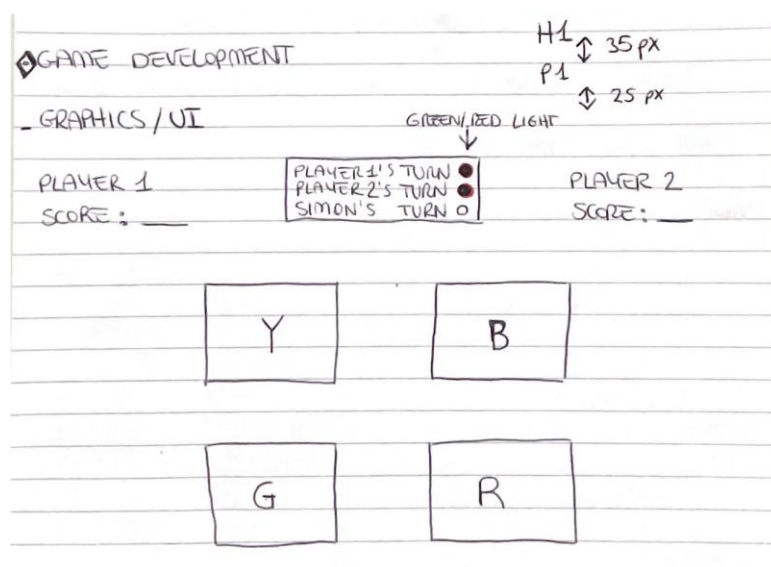 GAME DEVELOPMENT
H1
35 px
P1
25 px
- GRAPHICS / UI
GREEN/RED LIGHT
PLAYER 1
SCORE: __
PLAYER 1'S TURN
PLAYER 2'S TURN
SIMON'S TURN
PLAYER 2
SCORE: __
Y
B
G
R